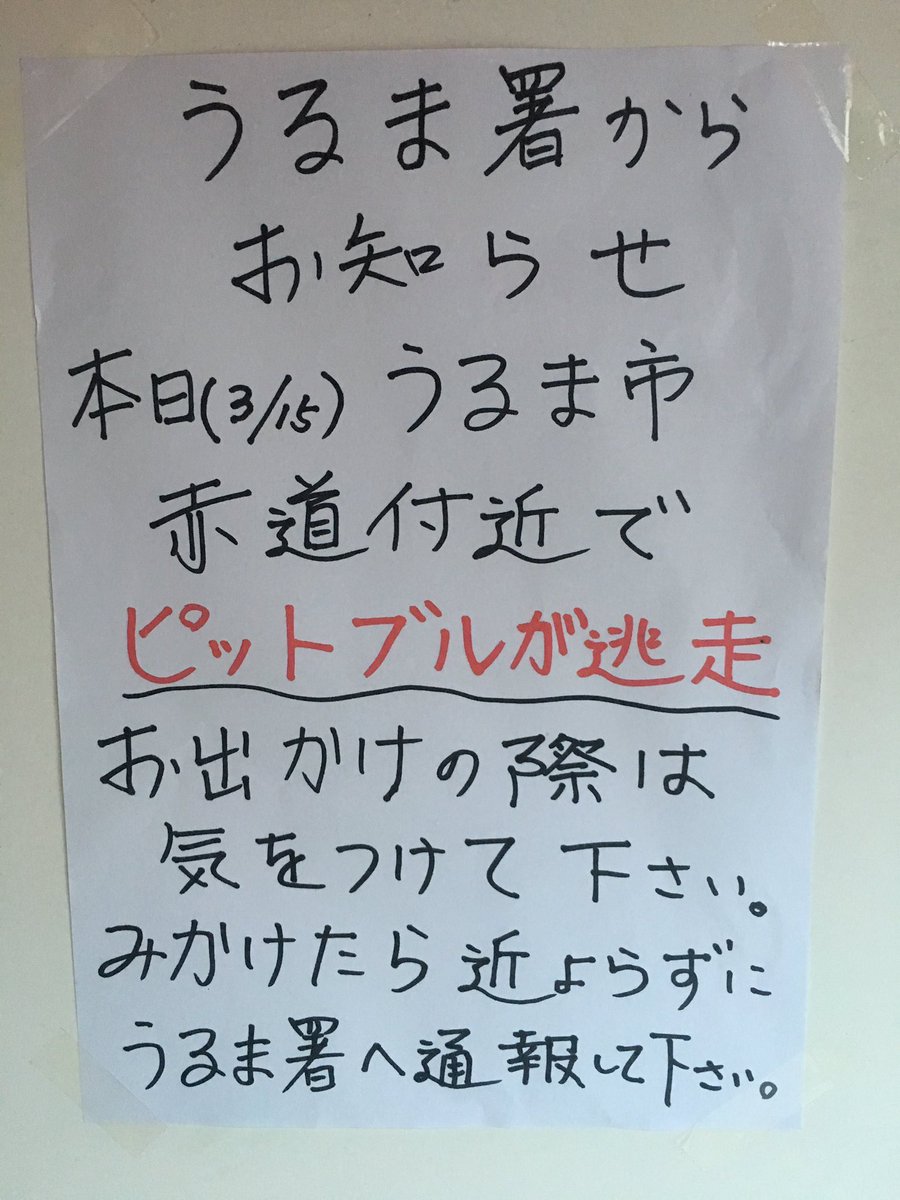 うるま署から
お知らせ
本日(3/15)うるま市
赤道付近で
ピットブルが逃走
お出かけの際は
気をつけて下さい。
みかけたら近よらずに
うるま署へ通報して下さい。